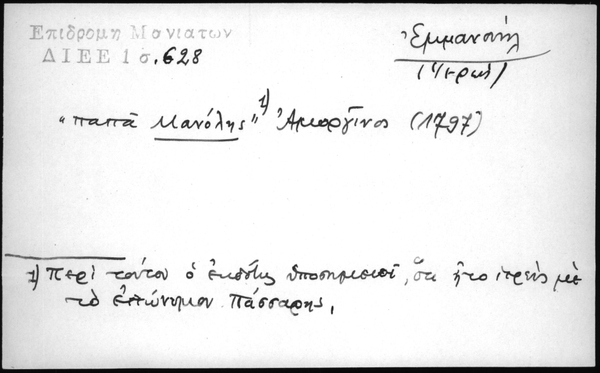 Επιδρομη Μανιατων
ΔΙΕΕ 1 σ. 628
Ἐμμανουήλ
(ἱερεὺς)
"παπᾶ Μανόλης" 1) Ἀμοργῖνος (1797)
1) Περὶ τούτου ὁ ἐκδότης ὑποσημειοῖ, ὅτι ἦτο ἱερεὺς μὲ
τὸ ἐπώνυμον Πάσσαρης.